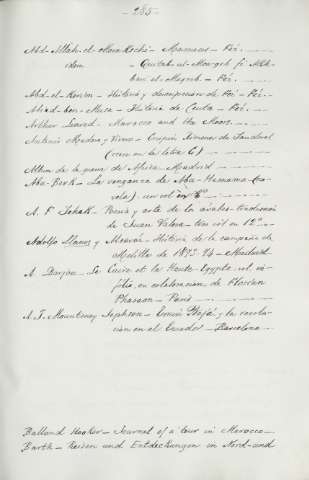 - 285 -
Abd-Allah-el-Marrakeschi - Marruecos - Fez.
idem - Quitab-el-Mough fi Akh-
bar el Magreb - Fez.
Abd-el-Kerim - Historia y descripcion de Fez - Fez.
Abiad-ben-Musa - Historia de Ceuta - Fez.
Arthur Leared - Marocco and the Moors
Antonio Medina y Vivero - Crispin Ximenez de Sandoval
(vease en la letra C)
Album de la guerra de Africa - Madrid
Abu-Bark - La venganza de Abu-Hamama (no-
vela) un vol en 8º
A. F. Schak - Poesia y arte de los arabes - traduccion
de Juan Valera - tres vol en 12º
Adolfo Llanos y Alcaraz - Historia de la campaña de
Melilla de 1893-94 - Madrid
A. Dayot - Le Caire et la Haute Egypte vol.
folio, en colaboracion de Florian
Pharaon - Paris
A. J. Mounteney Jephson - Emin Bajá y la revolu-
cion en el Ecuador - Barcelona
Balland Hooker - Journal of a tour in Marocco
Barth - Reisen und Entdeckungen in Nord-und